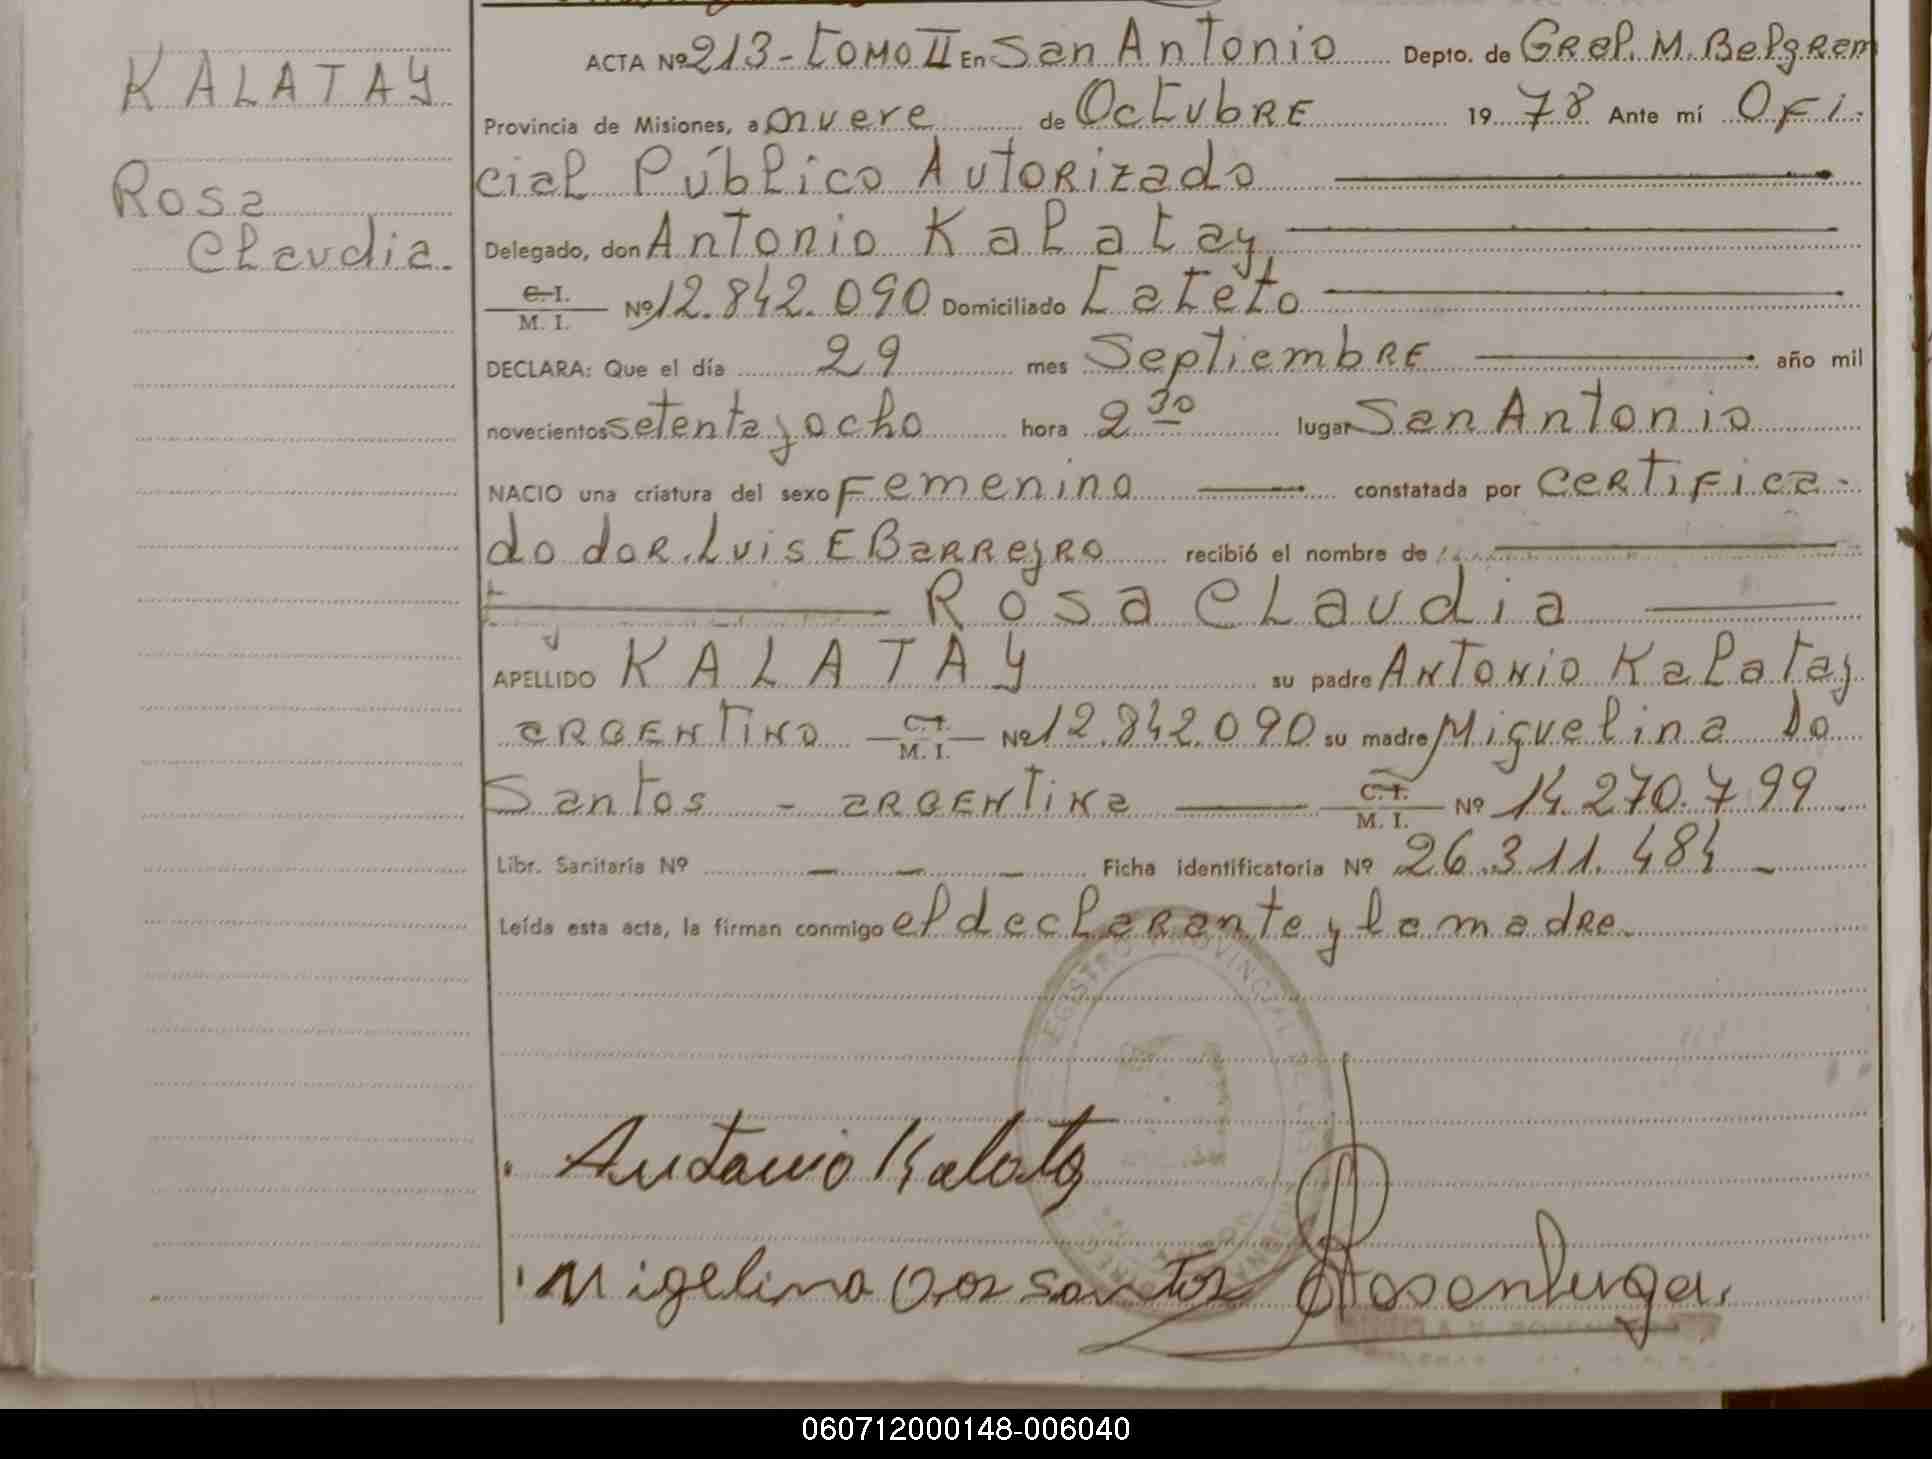 KALATAY
Rosa
Claudia.
ACTA Nº 213 - TOMO II En San Antonio Depto. de Gral. M. Belgran
Provincia de Misiones, a nueve de Octubre 19 78 Ante mí Ofi-
cial Público Autorizado
Delegado, don Antonio Kalatay
C. I. / M. I. Nº 12.842.090 Domiciliado Tateto
DECLARA: Que el día 29 mes Septiembre año mil
novecientos setenta y ocho hora 2 30 lugar San Antonio
NACIO una criatura del sexo Femenino constatada por certifica-
do dor. Luis E Barreyro recibió el nombre de
Rosa Claudia
APELLIDO KALATAY su padre Antonio Kalatay
argentino C. I. / M. I. Nº 12.842.090 su madre Miguelina Do
Santos - argentina C. I. / M. I. Nº 14.270.799
Libr. Sanitaria Nº - - - Ficha identificatoria Nº 26.311.484 -
Leída esta acta, la firman conmigo el declarante y la madre.
REGISTRO PROVINCIAL DE LAS
Antonio Kalatay
Migelina Dos santos
060712000148-006040